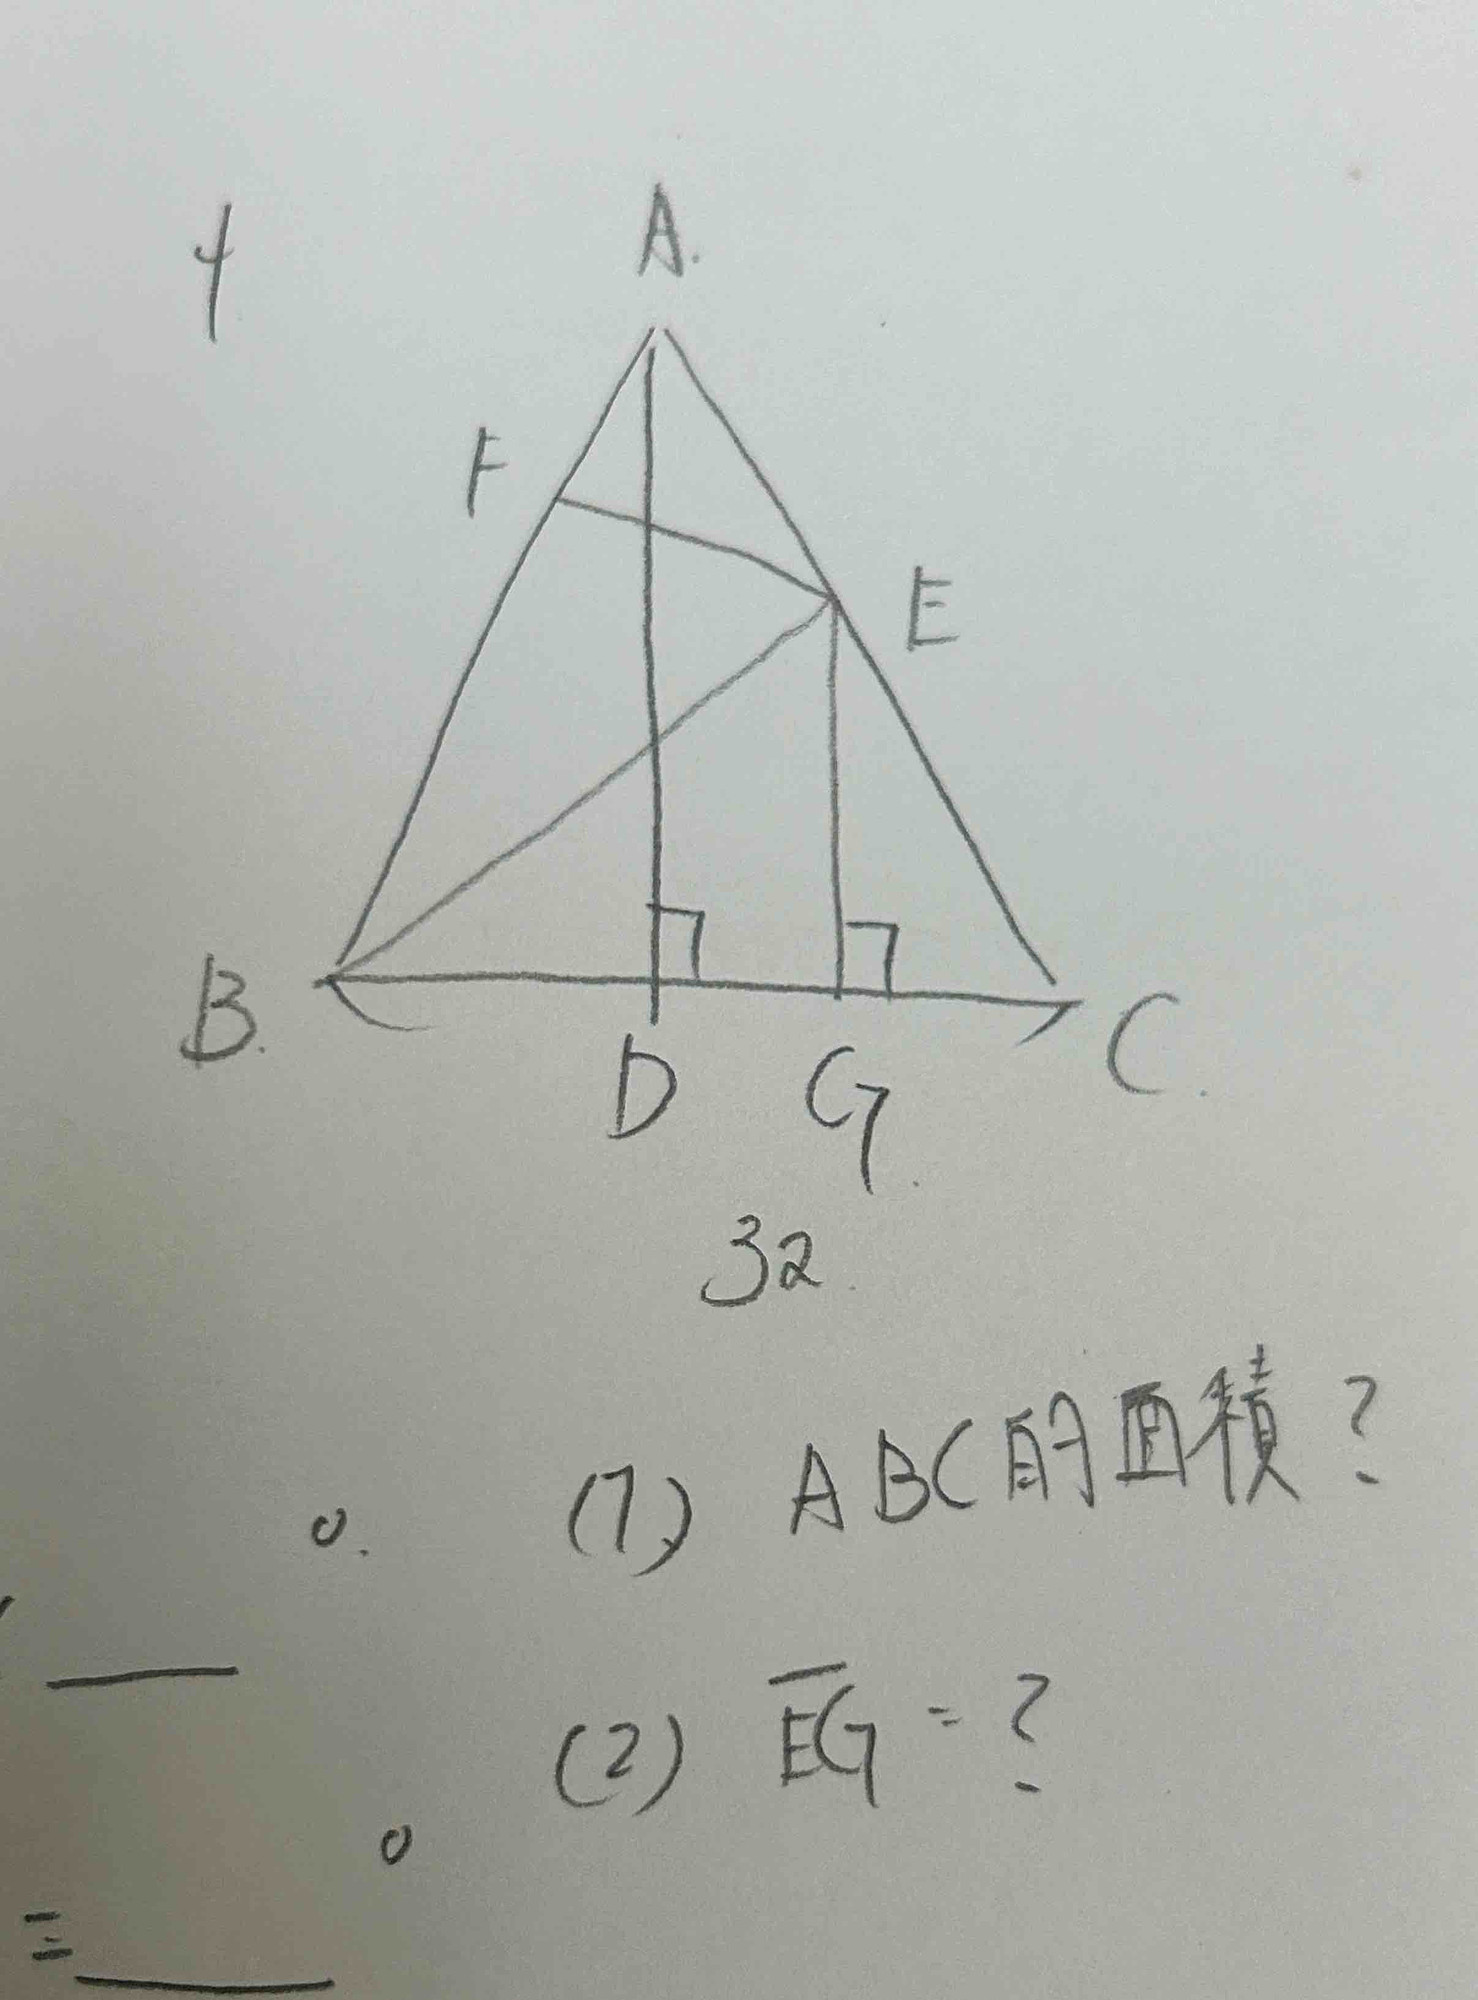 4
A.
F
E
B.
D G.
C.
32.
(1) ABC的面積?
(2) EG = ?
=